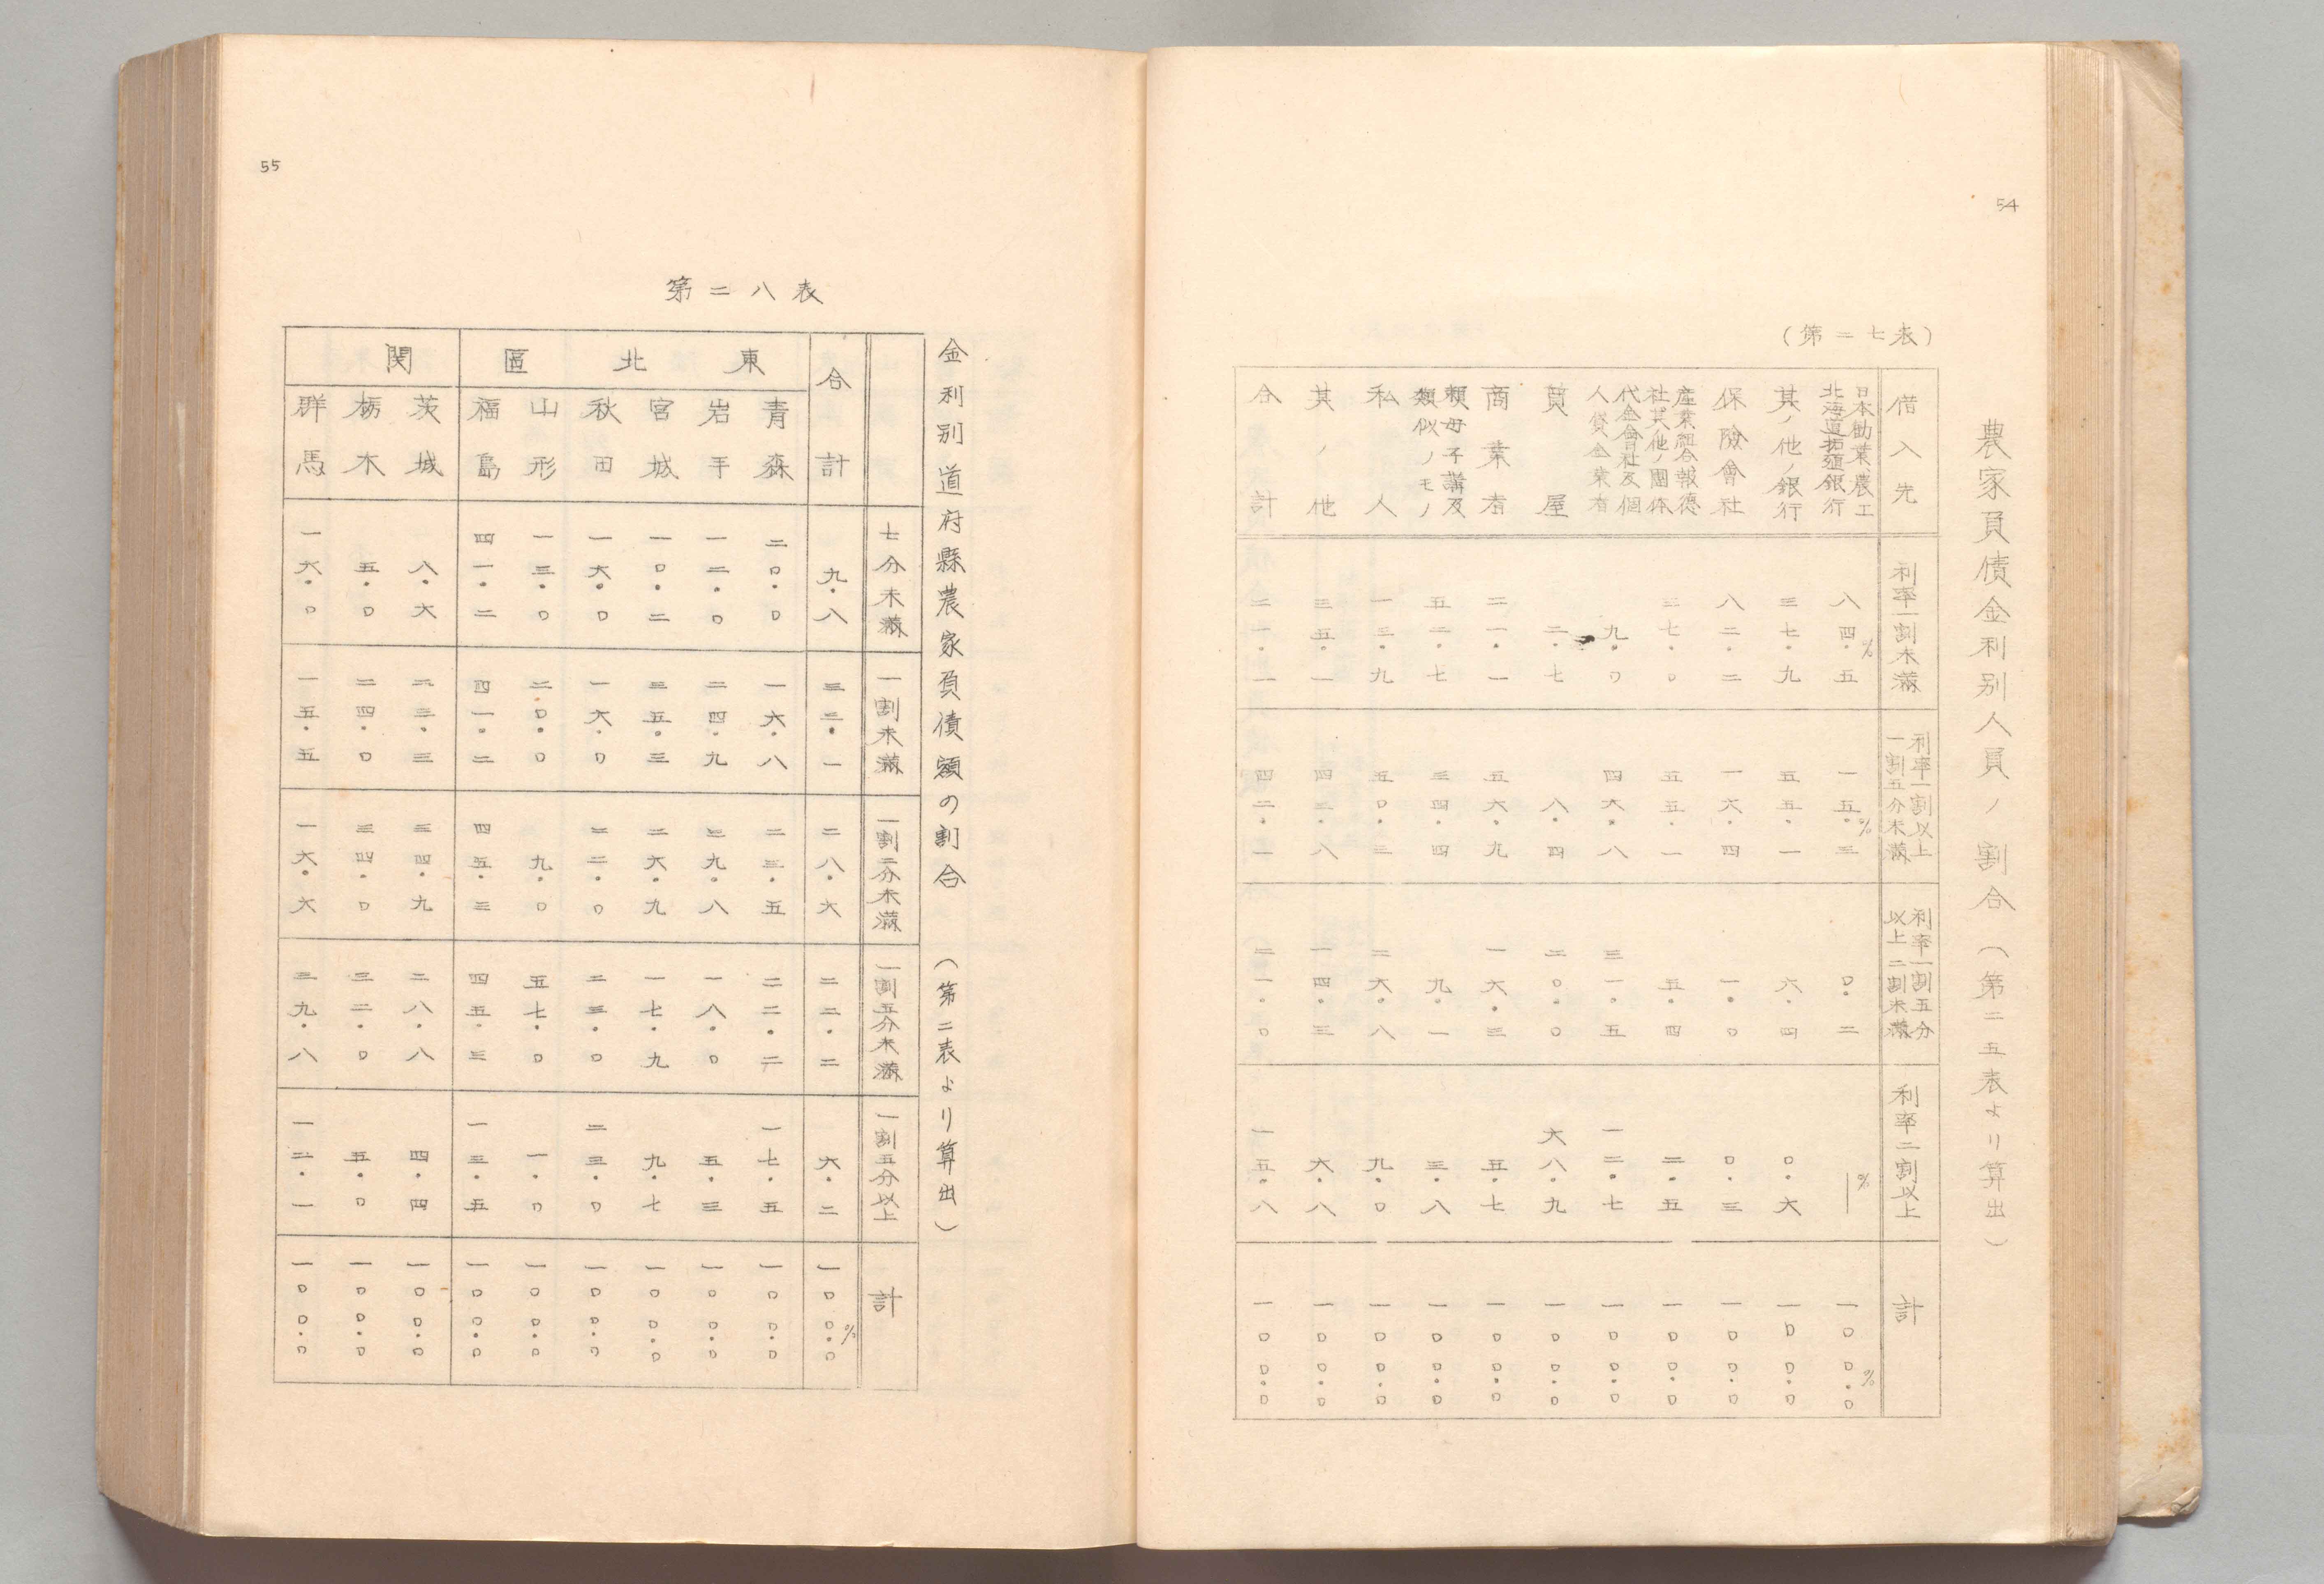 54
農家負債金利別人員ノ割合（第二五表より算出）
（第二七表）
借入先 利率一割未満 利率一割以上一割五分未満 利率一割五分以上二割未満 利率二割以上 計
日本勧業、農工北海道拓殖銀行 八四・五% 一五・三% 〇・二 ―% 一〇〇・〇%
其ノ他ノ銀行 三七・九 五五・一 六・四 〇・六 一〇〇・〇
保險會社 八二・二 一六・四 一・〇 〇・三 一〇〇・〇
産業組合報徳社其ノ他ノ團体 三七・〇 五五・一 五・四 二・五 一〇〇・〇
代金會社及個人貸金業者 九・〇 四六・八 三一・五 一二・七 一〇〇・〇
質屋 二・七 八・四 二〇・〇 六八・九 一〇〇・〇
商業者 二一・一 五六・九 一六・三 五・七 一〇〇・〇
頼母子講及類似ノモノ 五二・七 三四・四 九・一 三・八 一〇〇・〇
私人 一三・九 五〇・三 二六・八 九・〇 一〇〇・〇
其ノ他 三五・一 四三・八 一四・三 六・八 一〇〇・〇
合計 二一・一 四二・一 二一・〇 一五・八 一〇〇・〇
55
第二八表
金利別道府縣農家負債額の割合（第二表より算出）
七分未満 一割未満 一割二分未満 一割五分未満 一割五分以上 計
合計 九・八 三三・一 二八・六 二二・二 六・二 一〇〇・〇%
東北區
青森 二〇・〇 一六・八 二三・五 二二・二 一七・五 一〇〇・〇
岩手 一二・〇 二四・九 三九・八 一八・〇 五・三 一〇〇・〇
宮城 一〇・二 三五・三 二六・九 一七・九 九・七 一〇〇・〇
秋田 一六・〇 一六・〇 二二・〇 二三・〇 二三・〇 一〇〇・〇
山形 一三・〇 二〇・〇 九・〇 五七・〇 一・〇 一〇〇・〇
福島 四一・二 四一・二 四五・三 四五・三 一三・五 一〇〇・〇
関
茨城 八・六 二三・三 三四・九 二八・八 四・四 一〇〇・〇
栃木 五・〇 二四・〇 三四・〇 三二・〇 五・〇 一〇〇・〇
群馬 一六・〇 一五・五 一六・六 三九・八 一二・一 一〇〇・〇